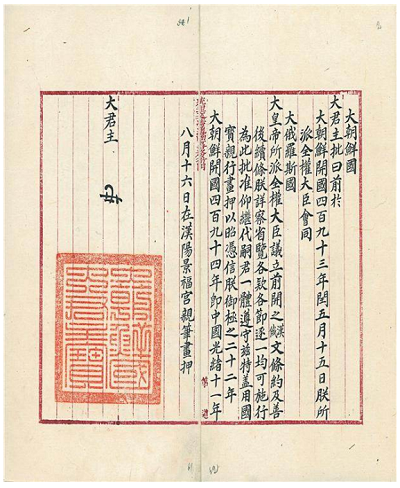 大朝鮮國
大君主批曰前於
大朝鮮開國四百九十三年閏五月十五日朕所
派全權大臣會同
大俄羅斯國
大皇帝所派全權大臣議立前開之漢俄文條約及善
後續條朕詳察省覽各款各節逐一均可施行
為此批准仰繼代嗣君一體遵守茲特蓋用國
寶親行畫押以昭憑信朕御極之二十二年
大朝鮮開國四百九十四年卽中國光緒十一年
八月十六日在漢陽景福宮親筆畫押
大君主
大朝鮮國
大君主寶